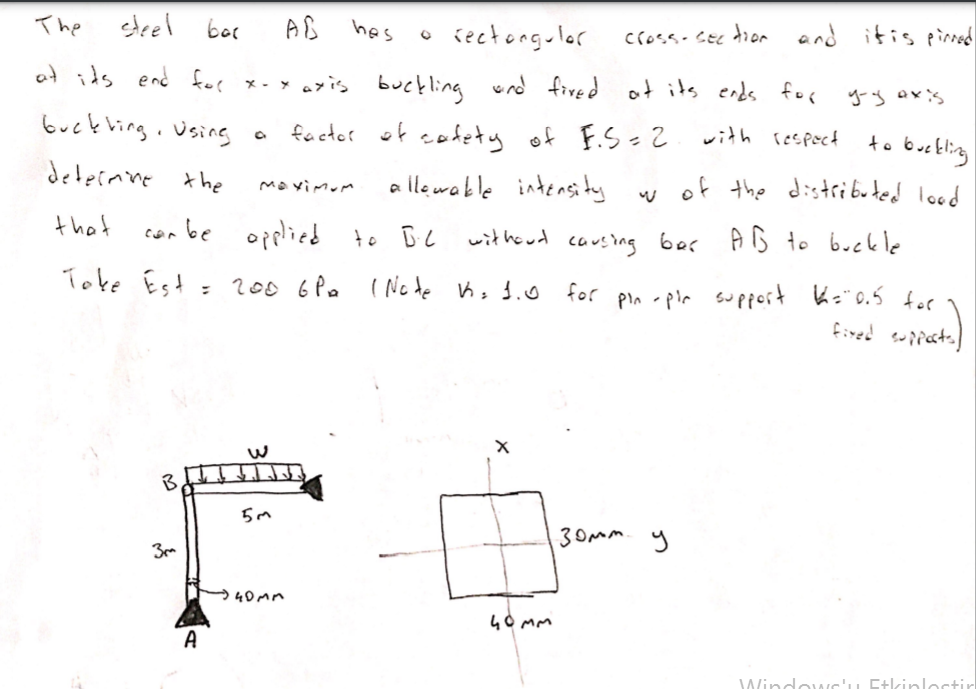 The steel bar AB has a rectangular cross-section and it is pinned
at its end for x-x axis buckling and fixed at its ends for y-y axis
buckling. Using a factor of safety of F.S = 2 with respect to buckling
determine the maximum allowable intensity w of the distributed load
that can be applied to BC without causing bar AB to buckle
Take Est = 200 GPa (Note K = 1.0 for pin-pin support K = 0.5 for
fixed supports)
w
x
B
5m
30mm y
3m
40mm
40mm
A